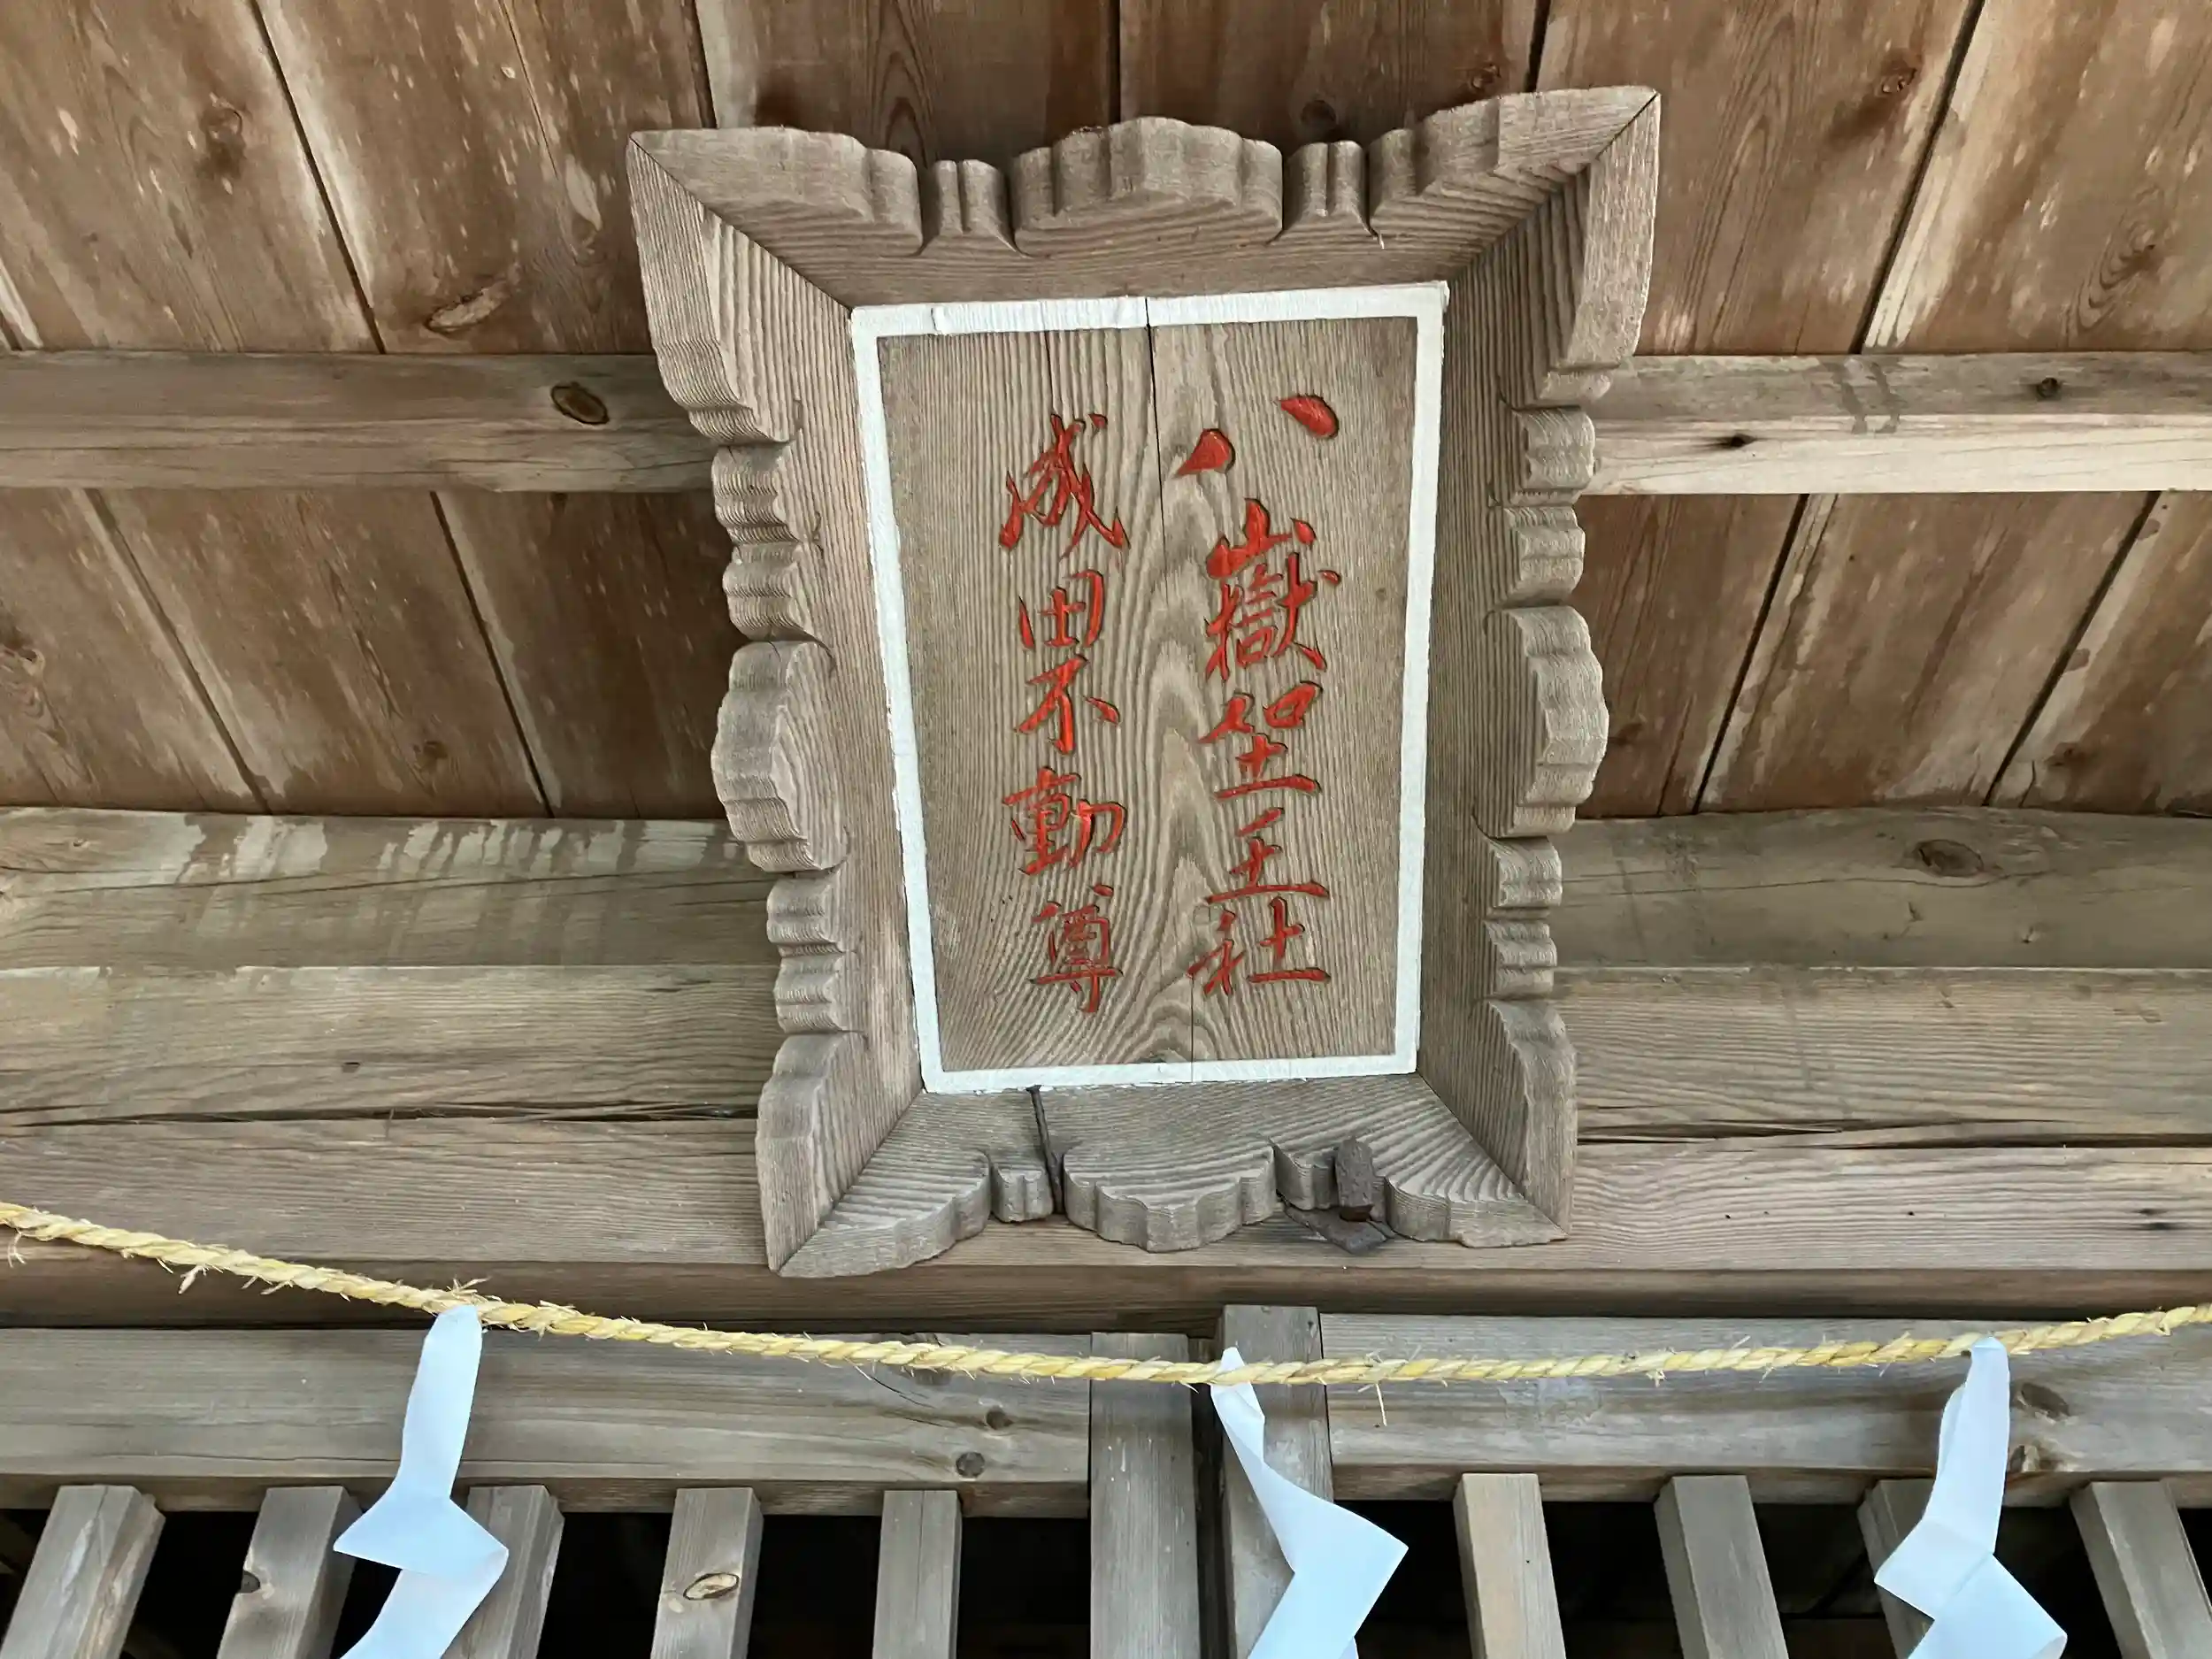 八嶽坐王社
成田不動尊